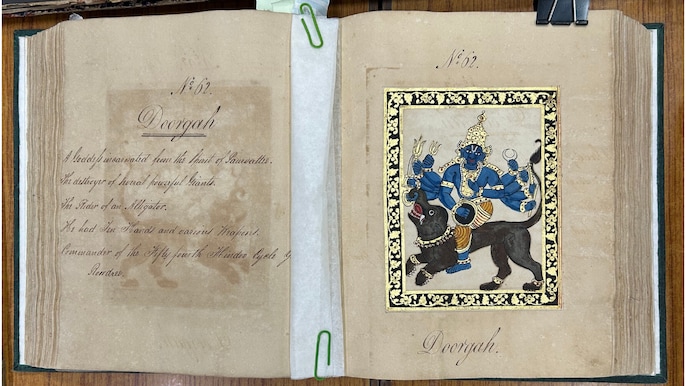 No. 62.
Doorgah
A Goddess incarnated from the Spirit of
The destroyer of several powerful Giants.
The Rider of an Alligator.
He had Ten Hands and various Weapons.
Commander of the Fifty fourth Hindoo Cycle of
No. 62.
Doorgah.